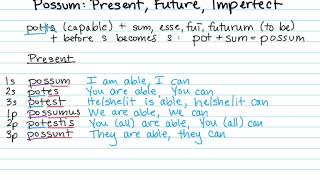 Possum: Present, Future, Imperfect
potis (capable) + sum, esse, fuī, futurum (to be)
t before s becomes s: pot + sum = possum
Present
1s possum I am able, I can
2s potes You are able, You can
3s potest He|she|it is able, he|she|it can
1p possumus We are able, we can
2p potestis You (all) are able, You (all) can
3p possunt They are able, they can